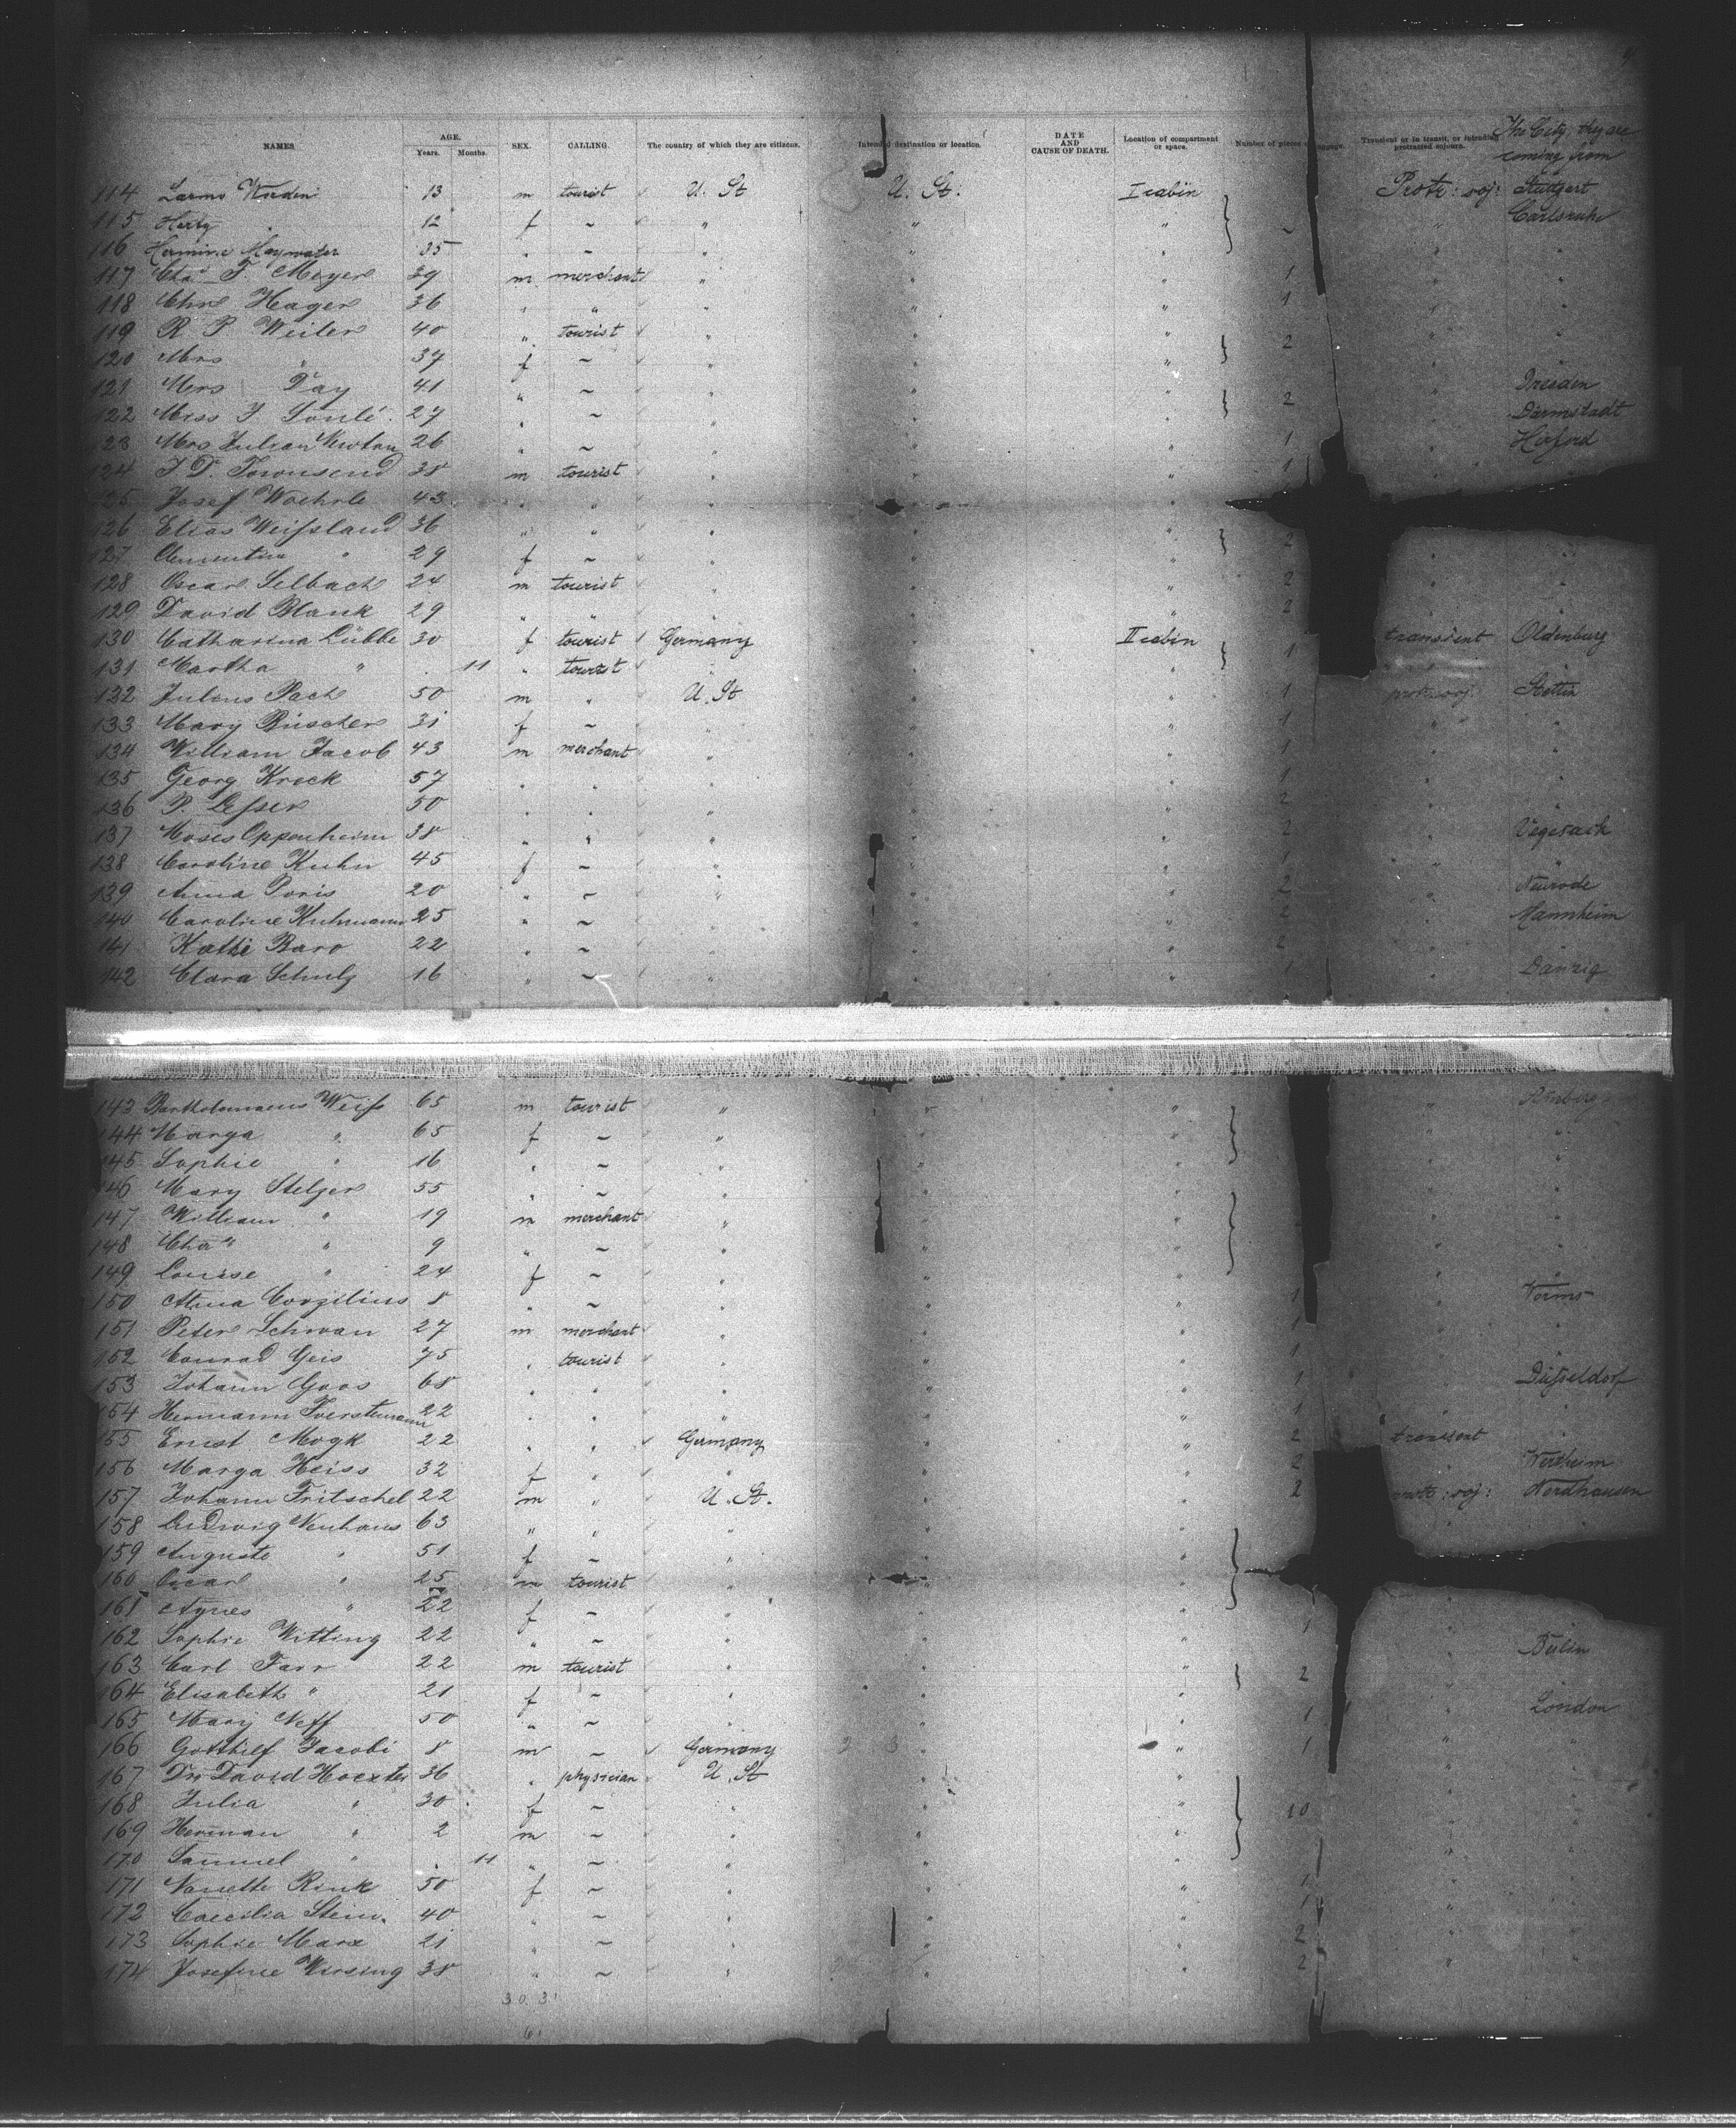 The City, they are
coming from
NAMES AGE. Years. Months. SEX. CALLING. The country of which they are citizens. Intended destination or location. DATE AND CAUSE OF DEATH. Location of compartment or space. Number of pieces Transient or in transit, or intending protracted sojourn.
114 13 m tourist U. St U. St. I cabin Protr: soj: Stuttgart
115 12 f ~ " " " ~ " Carlsruhe
116 35 " ~ " " "
117 Chas F. Meyer 39 m merchant " " " 1
118 Chrs Hager 36 " " " " " 1
119 R. P. Weiler 40 " tourist " " "
120 Mrs " 37 f ~ " " " 2
121 Mrs Fay 41 " ~ " " " Dresden
122 Miss 27 " ~ " " " 2 Darmstadt
123 Mrs Julian Newton 26 " ~ " " " 1
124 J. D. Townsend 38 m tourist " " " 1
125 Josef Woehrle 43 " " " " "
126 Elias 36 " " " " "
127 Clementine " 29 f ~ " " " 2
128 Oscar Selbach 24 m tourist " " " 2
129 David Blank 29 " " " " " 2
130 Catharina Lübbe 30 f tourist Germany " II cabin transient Oldenburg
131 Martha " 11 " tourist " " " 1
132 Julius Pach 50 m " U. St " " 1 protr: soj: Stettin
133 Mary Büscher 31 f ~ " " " 1
134 William Jacob 43 m merchant " " " 1
135 Georg Krick 57 " " " " " 1
136 P. Lesser 50 " " " " " 2
137 Moses Oppenheim 38 " " " " " 2 Vegesack
138 Caroline Kuhn 45 f ~ " " " 1
139 Anna Doris 20 " ~ " " " 2 Neurode
140 Caroline Kuhmann 25 " ~ " " " 2 Mannheim
141 Kathi Baro 22 " ~ " " " 2
142 Clara Schulz 16 " ~ " " " 1 Danzig
143 Bartholomaeus Weiss 65 m tourist " " "
144 Marga " 65 f ~ " " "
145 Sophie " 16 " ~ " " "
146 Mary Stelzer 55 " ~ " " "
147 William " 19 m merchant " " "
148 Chas " 9 " ~ " " "
149 Louise " 24 f ~ " " "
150 Anna Corzilius 8 " ~ " " " 1 Worms
151 Peter Schwan 27 m merchant " " " 1
152 Conrad Geis 75 " tourist " " " 1
153 Johann Goos 68 " " " " " 1 Düsseldorf
154 Hermann 22 " " " " " 1
155 Ernst Mogk 22 " " Germany " " 2 transient
156 Marga Heiss 32 f " " " " 2 Wertheim
157 Johann Fritschel 22 m " U. St. " " 2 protr: soj: Nordhausen
158 Ludwig Neuhaus 63 " " " " "
159 Auguste " 51 f ~ " " "
160 Oscar " 25 m tourist " " "
161 Agnes " 22 f ~ " " "
162 Sophie Witting 22 " ~ " " " 1
163 Carl Farr 22 m tourist " " " 2
164 Elisabeth " 21 f ~ " " "
165 Mary Neff 50 " ~ " " " 1 London
166 Gotthilf Jacobi 8 m ~ Germany " " 1
167 Dr. David Hoexter 36 " physician U. St " "
168 Julia " 30 f ~ " " " 10
169 Herman " 2 m ~ " " "
170 Samuel " 11 " ~ " " "
171 Nanette Rink 50 f ~ " " " 1
172 Caecilia Stein 40 " ~ " " " 1
173 Sophie Marx 21 " ~ " " " 2
174 Josefine Wirsing 38 " ~ " " " 2